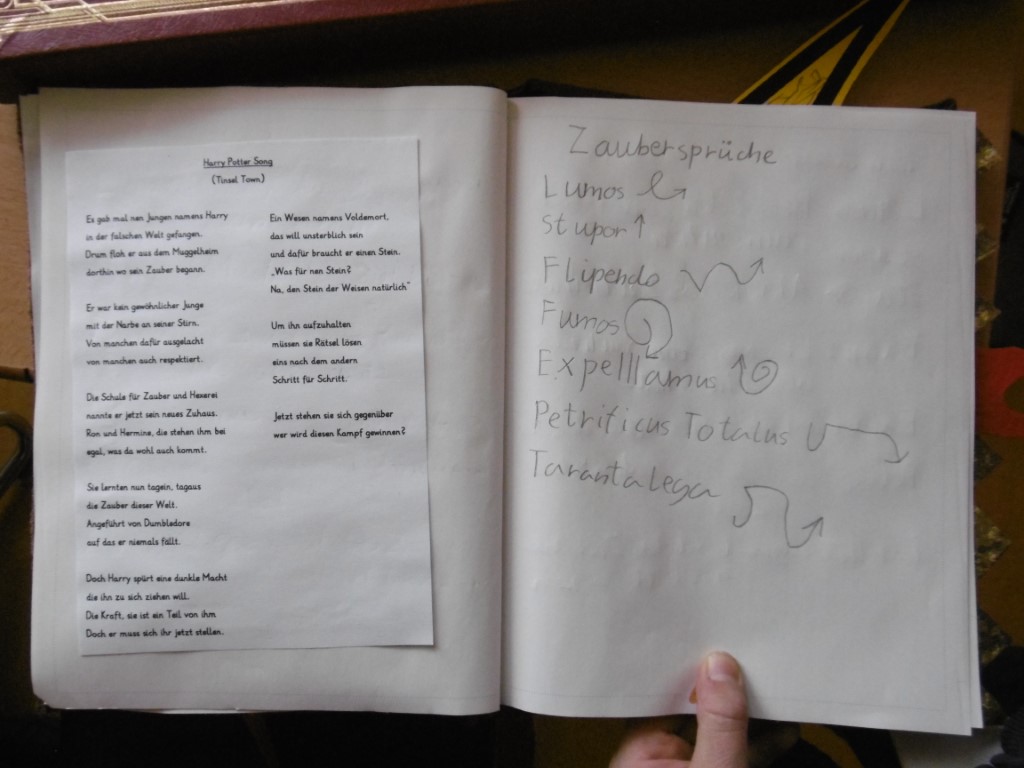 Harry Potter Song
(Tinsel Town)
Es gab mal nen Jungen namens Harry
in der falschen Welt gefangen.
Drum floh er aus dem Muggelheim
dorthin wo sein Zauber begann.
Er war kein gewöhnlicher Junge
mit der Narbe an seiner Stirn.
Von manchen dafür ausgelacht
von manchen auch respektiert.
Die Schule für Zauber und Hexerei
nannte er jetzt sein neues Zuhaus.
Ron und Hermine, die stehen ihm bei
egal, was da wohl auch kommt.
Sie lernten nun tagein, tagaus
die Zauber dieser Welt.
Angeführt von Dumbledore
auf das er niemals fällt.
Doch Harry spürt eine dunkle Macht
die ihn zu sich ziehen will.
Die Kraft, sie ist ein Teil von ihm
Doch er muss sich ihr jetzt stellen.
Ein Wesen namens Voldemort,
das will unsterblich sein
und dafür braucht er einen Stein.
„Was für nen Stein?
Na, den Stein der Weisen natürlich"
Um ihn aufzuhalten
müssen sie Rätsel lösen
eins nach dem andern
Schritt für Schritt.
Jetzt stehen sie sich gegenüber
wer wird diesen Kampf gewinnen?
Zaubersprüche
Lumos
Stupor
Flipendo
Fumos
Expelliamus
Petrificus Totalus
Tarantalega